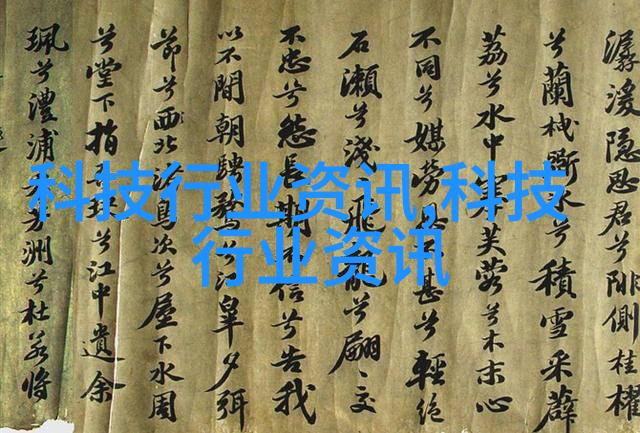 科技行业资讯,科技
行业资讯
潺湲隐思君兮陫側桂櫂
兮蘭枻斲冰兮積雪采薜
荔兮水中搴芙蓉兮木末心
不同兮媒勞恩甚兮輕絕
石瀨兮淺飛龍兮翩〻交
不忠兮怨長期不信兮告我
以不閒朝騁騖兮皋夕弭
節兮北渚鳥次兮屋下水周
兮堂下捐玦兮江中遺余
珮兮澧浦芳洲兮杜若將